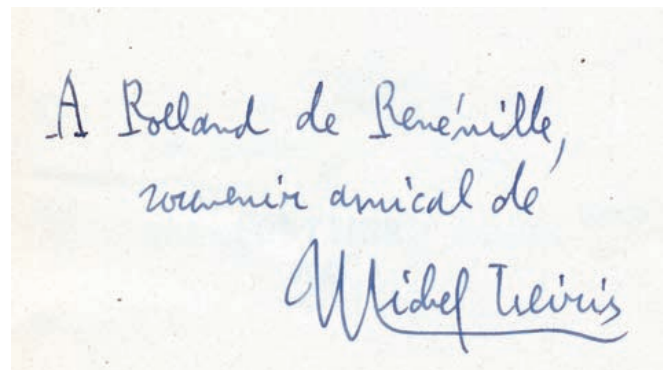 A Rolland de Renéville,
souvenir amical de
Michel Leiris